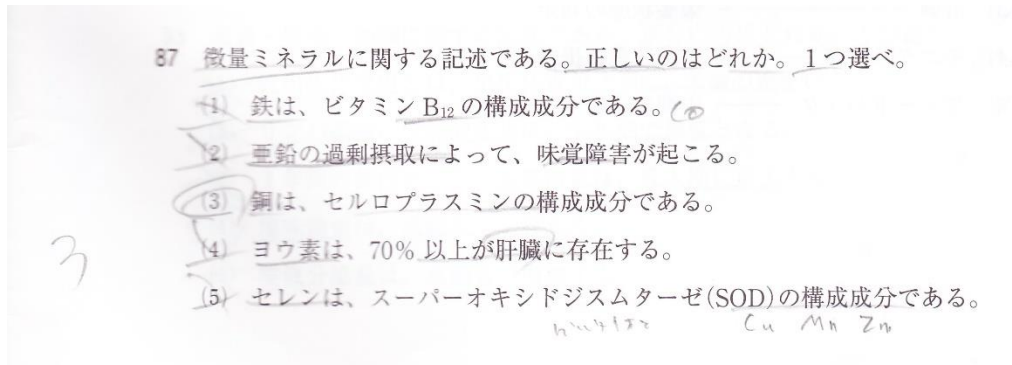 87 微量ミネラルに関する記述である。正しいのはどれか。1つ選べ。
(1) 鉄は、ビタミンB₁₂の構成成分である。Co
(2) 亜鉛の過剰摂取によって、味覚障害が起こる。
(3) 銅は、セルロプラスミンの構成成分である。
(4) ヨウ素は、70%以上が肝臓に存在する。
3
(5) セレンは、スーパーオキシドジスムターゼ(SOD)の構成成分である。
Cu Mn Zn